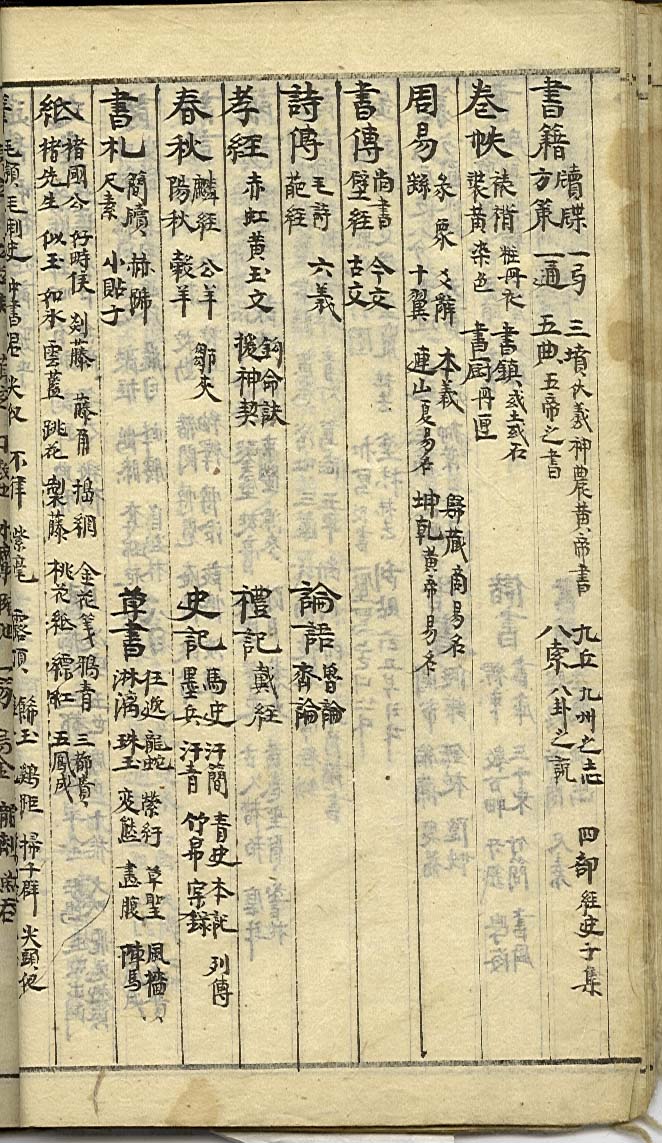 書籍 牘牒 方策 一弓 一通 三墳 伏羲神農黃帝書 五典 五帝之書 九丘 九州之志 八索 八卦之說 四部 經史子集
卷帙 裱褙 裝黃 粧丹衣 染色 書鎮 或土或石 書厨 丹匣
周易 彖象 爻辭 十翼 本義 連山 夏易名 歸藏 商易名 坤乾 黃帝易名
書傳 尚書 壁經 今文 古文
詩傳 毛詩 葩經 六義 論語 魯論 齊論
孝經 赤虹黃玉文 鉤命訣 援神契 禮記 戴經
春秋 麟經 陽秋 公羊 穀羊 鄒夾 史記 馬史 墨兵 汗簡 汗青 青史 竹帛 本記 實錄 列傳
書札 簡牘 尺素 赫蹄 小貼子 草書 狂逸 淋漓 龍蛇 珠玉 縈行 変態 草聖 畫腹 風檣 陣馬
紙 楮國公 楮先生 好時侯 似玉 如氷 剡藤 雲藍 藤角 跳花 搗網 製藤 金花箋 桃花紙 鴉青 縹紅 三櫛賣 五鳳成
毛穎 不律 紫毫 露頂 鷄距 掃千群 尖頭奴